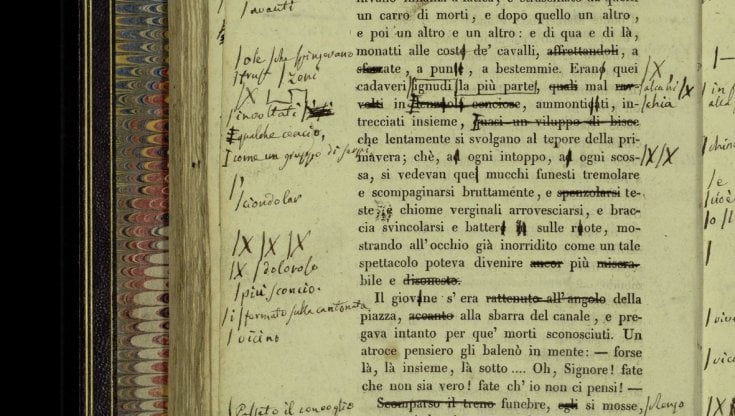 un carro di morti, e dopo quello un altro,
e poi un altro e un altro: e di qua e di là,
monatti alle coste de' cavalli, affrettandoli, a
sforzate, a punte, a bestemmie. Erano quei
cadaveri ignudi la più parte, quali mal
in conciose, ammonticati, in-
trecciati insieme, quasi un viluppo di bisce
che lentamente si svolgano al tepore della pri-
mavera; chè, ad ogni intoppo, ad ogni scos-
sa, si vedevan quei mucchi funesti tremolare
e scompaginarsi bruttamente, e spenzolarsi te-
ste e chiome verginali arrovesciarsi, e brac-
cia svincolarsi e batter sulle ruote, mo-
strando all'occhio già inorridito come un tale
spettacolo poteva divenire ancor più misera-
bile e disonesto.
Il giovine s'era rattenuto all'angolo della
piazza, accanto alla sbarra del canale, e pre-
gava intanto per que' morti sconosciuti. Un
atroce pensiero gli balenò in mente: — forse
là, là, insieme, là sotto .... Oh, Signore! fate
che non sia vero! fate ch'io non ci pensi! —
Scomparso il treno funebre, egli si mosse,
avanti
che spingevano
X
qualche cencio,
come un gruppo di serpi
ciondolar
X X X
X doloroso
più sconcio.
fermato sulla cantonata
vicino
Passato il convoglio
X
chia
X X